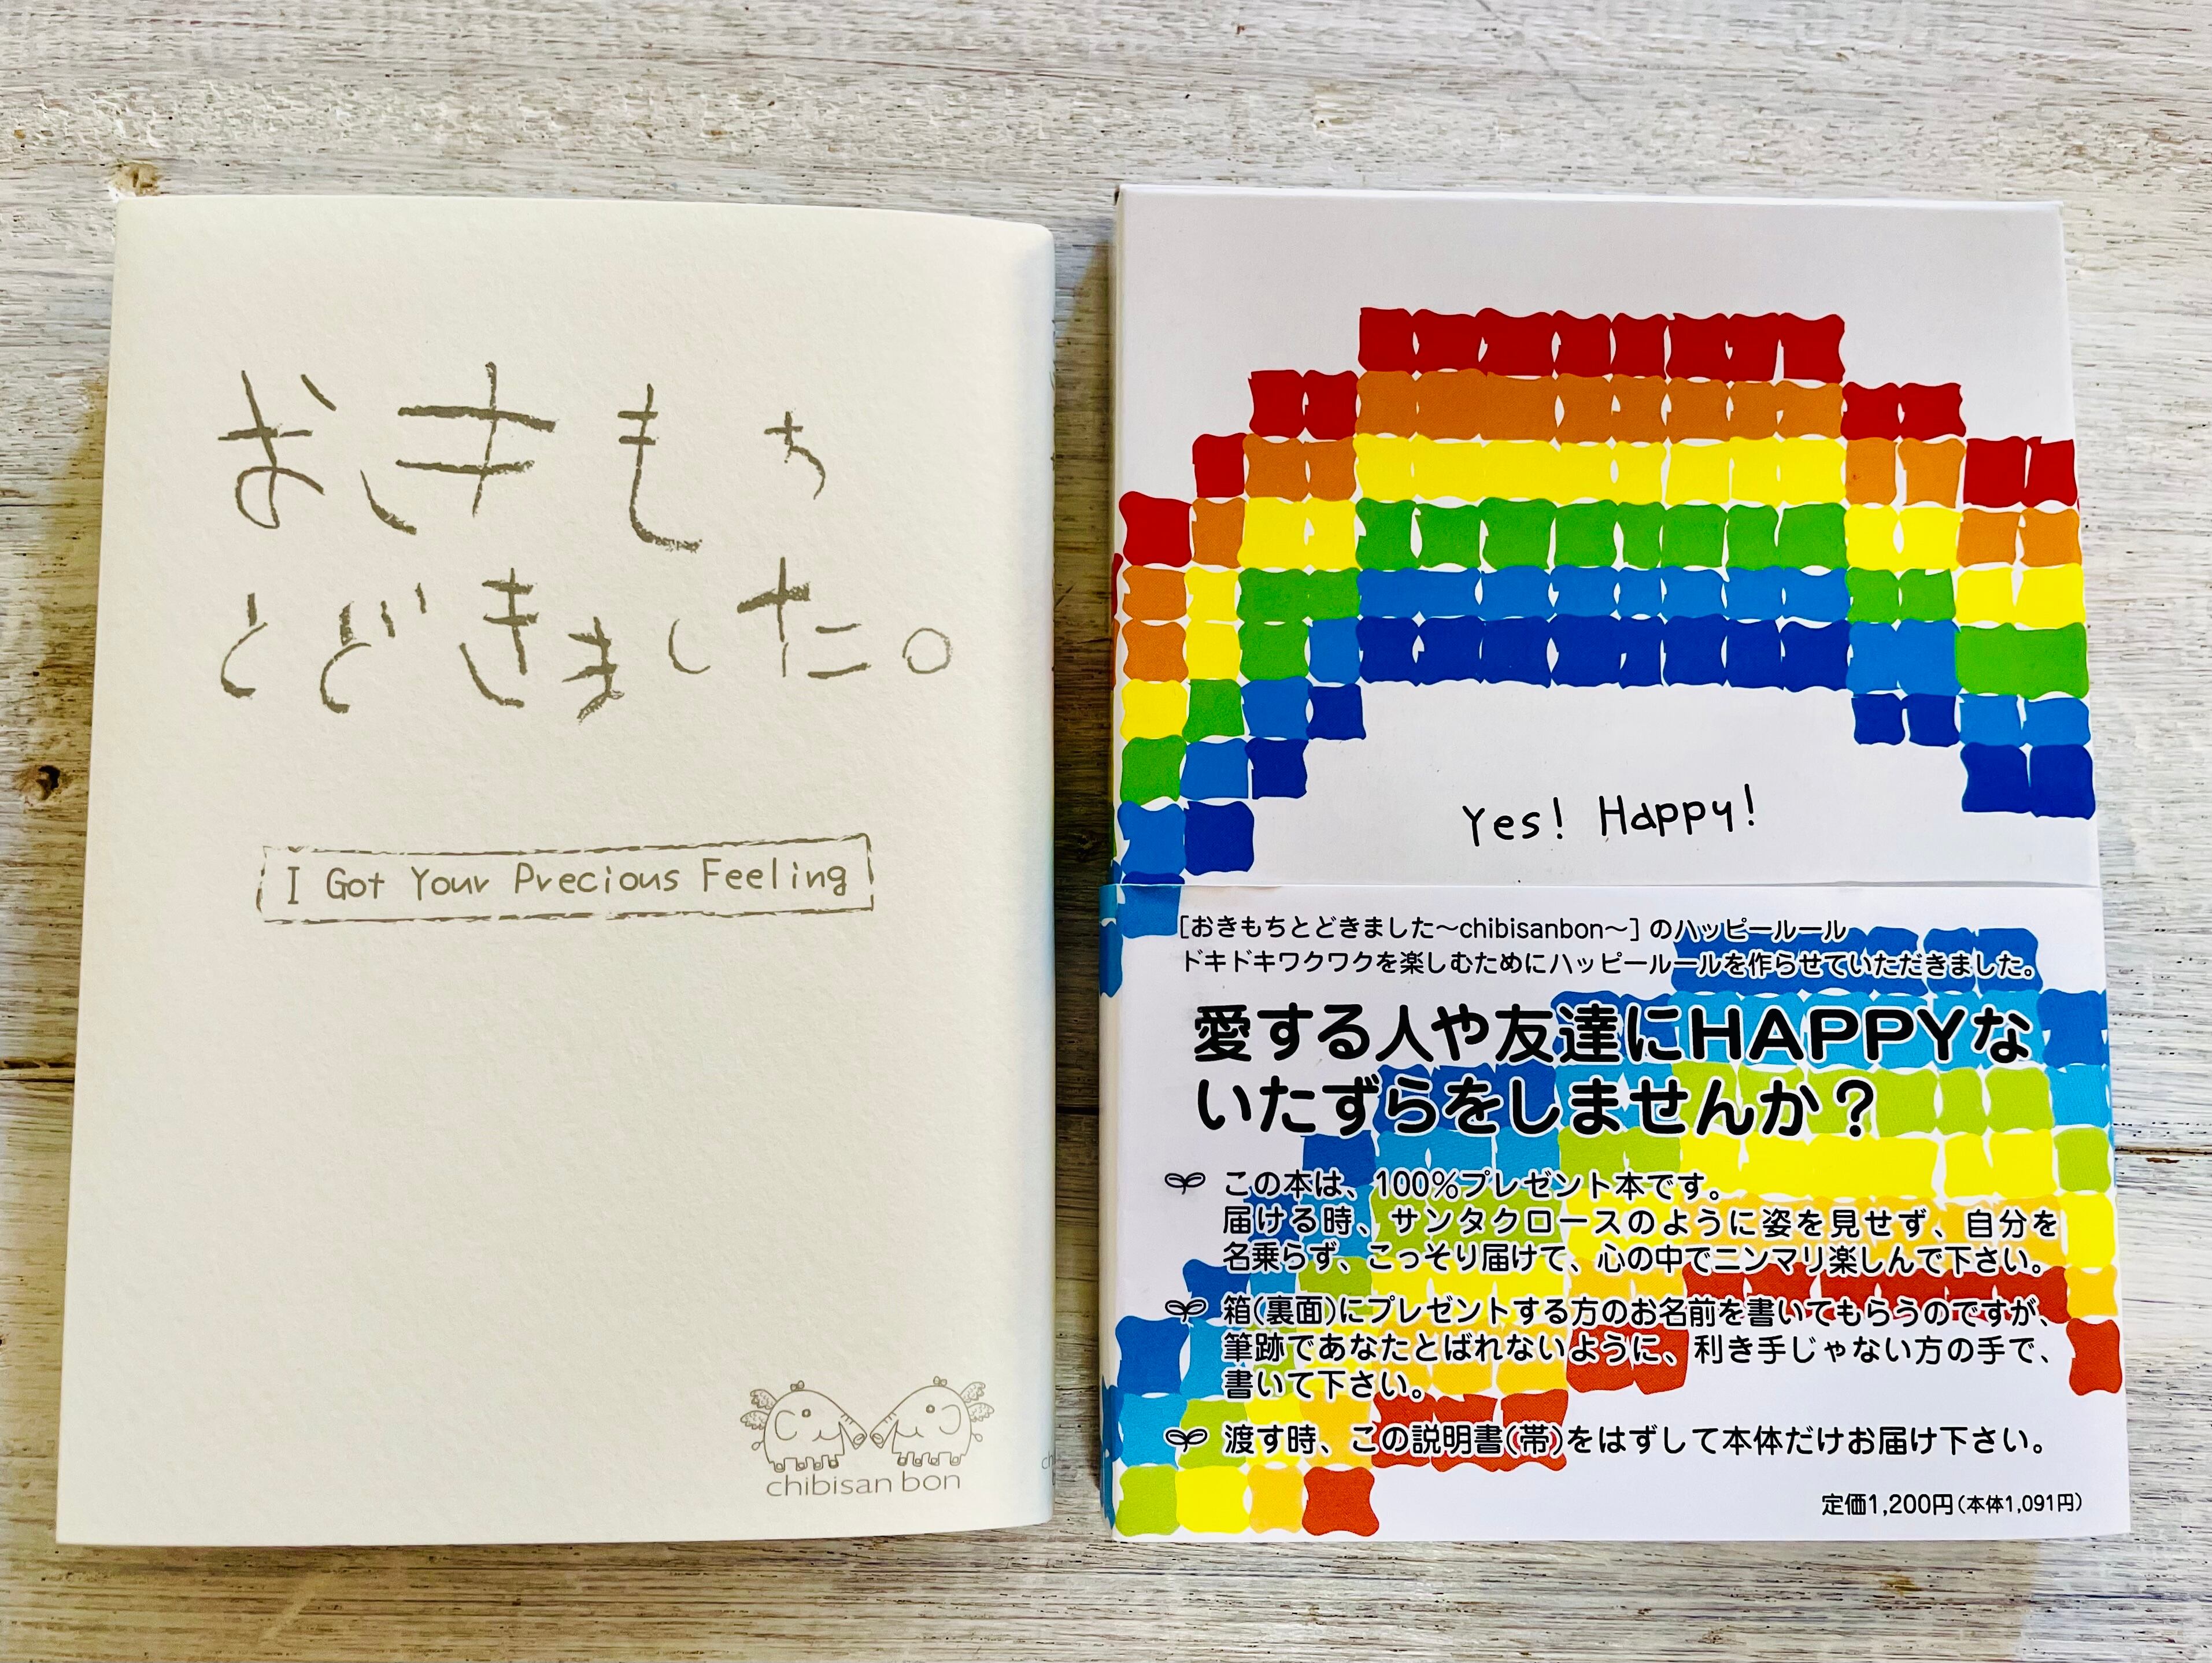 おきもち
とどきました。
I Got Your Precious Feeling
chibisan bon
Yes! Happy!
[おきもちとどきました〜chibisanbon〜] のハッピールール
ドキドキワクワクを楽しむためにハッピールールを作らせていただきました。
愛する人や友達にHAPPYな
いたずらをしませんか？
この本は、100%プレゼント本です。
届ける時、サンタクロースのように姿を見せず、自分を
名乗らず、こっそり届けて、心の中でニンマリ楽しんで下さい。
箱(裏面)にプレゼントする方のお名前を書いてもらうのですが、
筆跡であなたとばれないように、利き手じゃない方の手で、
書いて下さい。
渡す時、この説明書(帯)をはずして本体だけお届け下さい。
定価1,200円(本体1,091円)